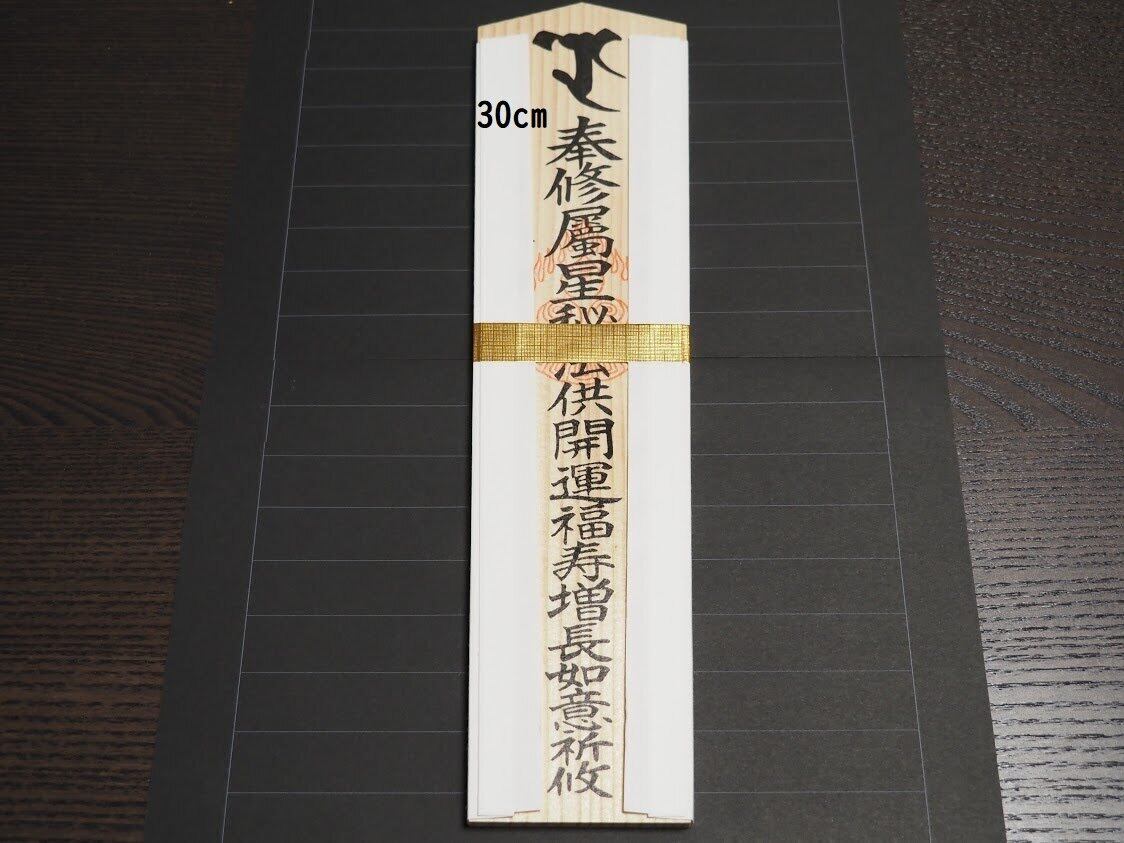 30cm
奉修屬星秘法供開運福寿増長如意祈攸